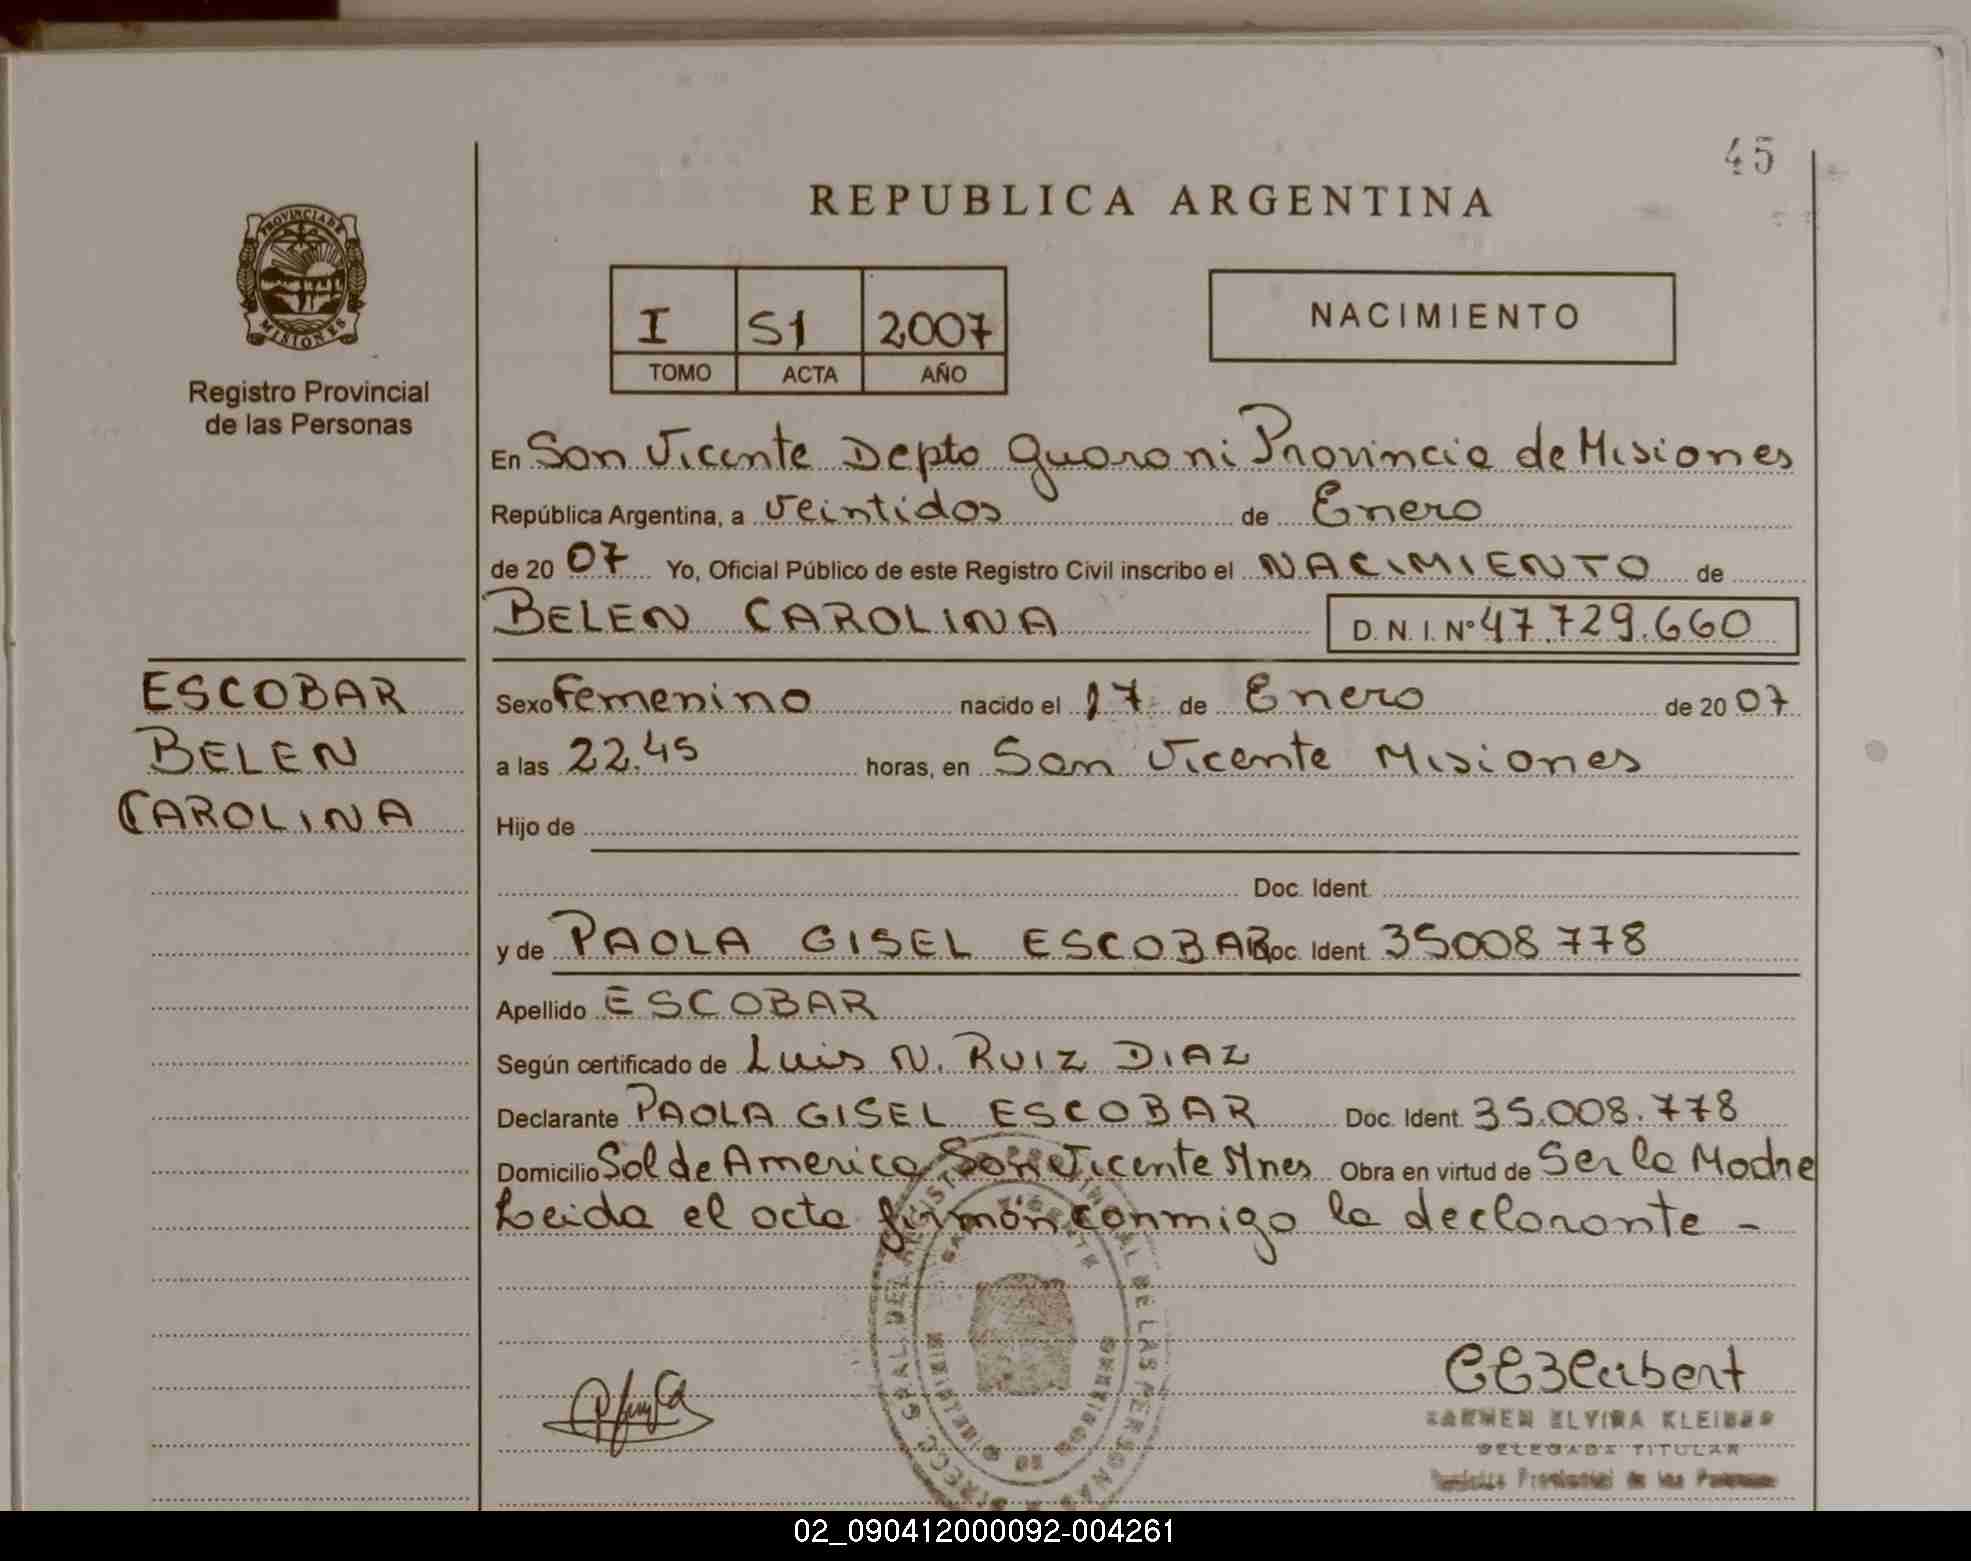 45
REPUBLICA ARGENTINA
PROVINCIA DE
MISIONES
Registro Provincial
de las Personas
I 51 2007
TOMO ACTA AÑO
NACIMIENTO
En San Vicente Depto Guarani Provincia de Misiones
República Argentina, a veintidos de Enero
de 2007 Yo, Oficial Público de este Registro Civil inscribo el NACIMIENTO de
BELEN CAROLINA D.N.I. Nº 47.729.660
ESCOBAR
BELEN
CAROLINA
Sexo Femenino nacido el 17 de Enero de 2007
a las 22.45 horas, en San Vicente Misiones
Hijo de
Doc. Ident.
y de PAOLA GISEL ESCOBAR Doc. Ident. 35008778
Apellido ESCOBAR
Según certificado de Luis N. RUIZ DIAZ
Declarante PAOLA GISEL ESCOBAR Doc. Ident. 35.008.778
Domicilio Sol de America San Vicente Mnes Obra en virtud de Ser la Madre
Leida el acta firman conmigo la declarante -
SAN VICENTE
MISIONES
CARMEN ELVIRA KLEIBER
DELEGADA TITULAR
Registro Provincial de las Personas
02_090412000092-004261